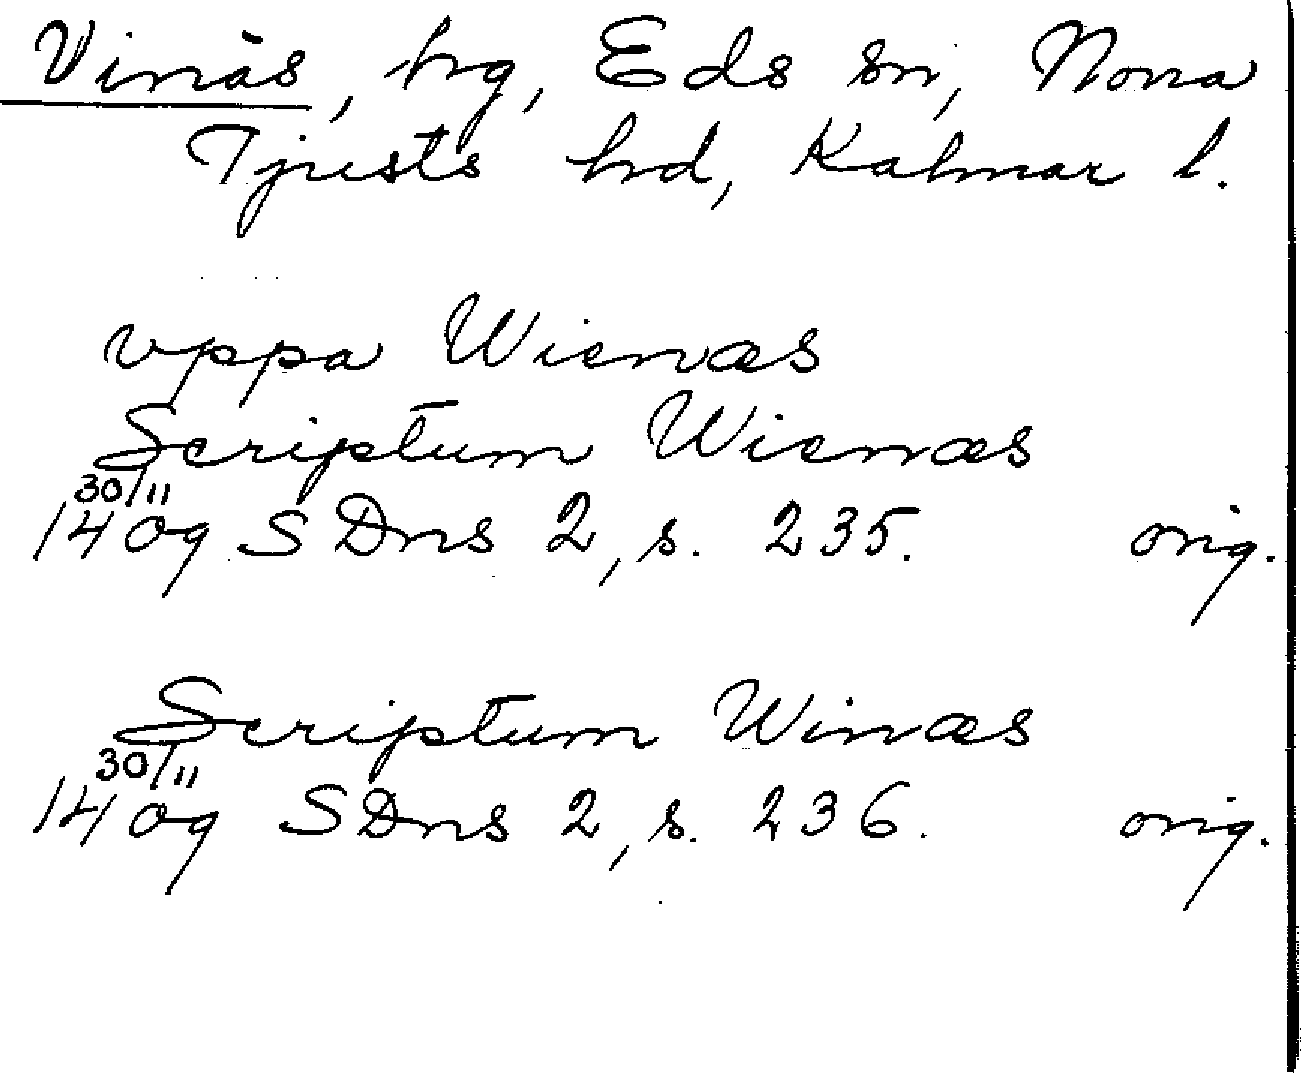 Vinäs, hg, Eds sn, Norra
Tjusts hd, Kalmar l.
vppa Wienæs
Scriptum Wienæs
30/11
1409 SDns 2, s. 235. orig.
Scriptum Winæs
30/11
1409 SDns 2, s. 236. orig.